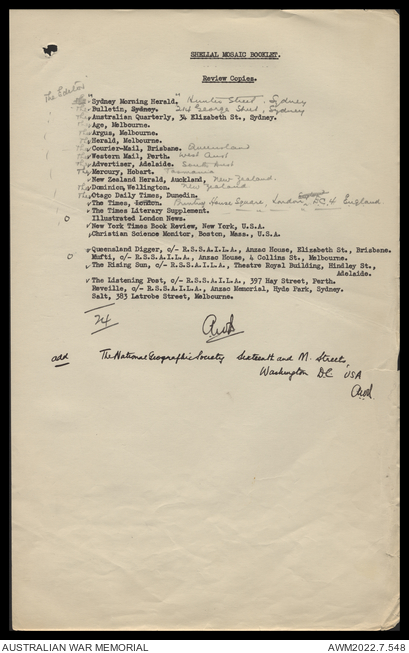 SHELLAL MOSAIC BOOKLET.
Review Copies.
The Editor
The "Sydney Morning Herald." Hunter Street, Sydney
The Bulletin, Sydney. 214 George Street, Sydney
The Australian Quarterly, Elizabeth St., Sydney.
The Age, Melbourne.
The Argus, Melbourne.
The Herald, Melbourne.
The Courier-Mail, Brisbane. Queensland
The Western Mail, Perth. West Aust
The Advertiser, Adelaide. South Aust
The Mercury, Hobart. Tasmania
New Zealand Herald, Auckland, New Zealand.
The Dominion, Wellington. New Zealand
The Otago Daily Times, Dunedin.
The Times, London. Printing House Square, London, E.C.4 England
The Times Literary Supplement.
Illustrated London News.
New York Times Book Review, New York, U.S.A.
Christian Science Monitor, Boston, Mass., U.S.A.
Queensland Digger, c/- R.S.S.A.I.L.A., Anzac House, Elizabeth St., Brisbane.
Mufti, c/- R.S.S.A.I.L.A., Anzac House, 4 Collins St., Melbourne.
The Rising Sun, c/- R.S.S.A.I.L.A., Theatre Royal Building, Hindley St.,
Adelaide.
The Listening Post, c/- R.S.S.A.I.L.A., 397 Hay Street, Perth.
Reveille, c/- R.S.S.A.I.L.A., Anzac Memorial, Hyde Park, Sydney.
Salt, 383 Latrobe Street, Melbourne.
24
add The National Geographic Society Sixteenth and M. Streets,
Washington D.C. USA
AUSTRALIAN WAR MEMORIAL
AWM2022.7.548